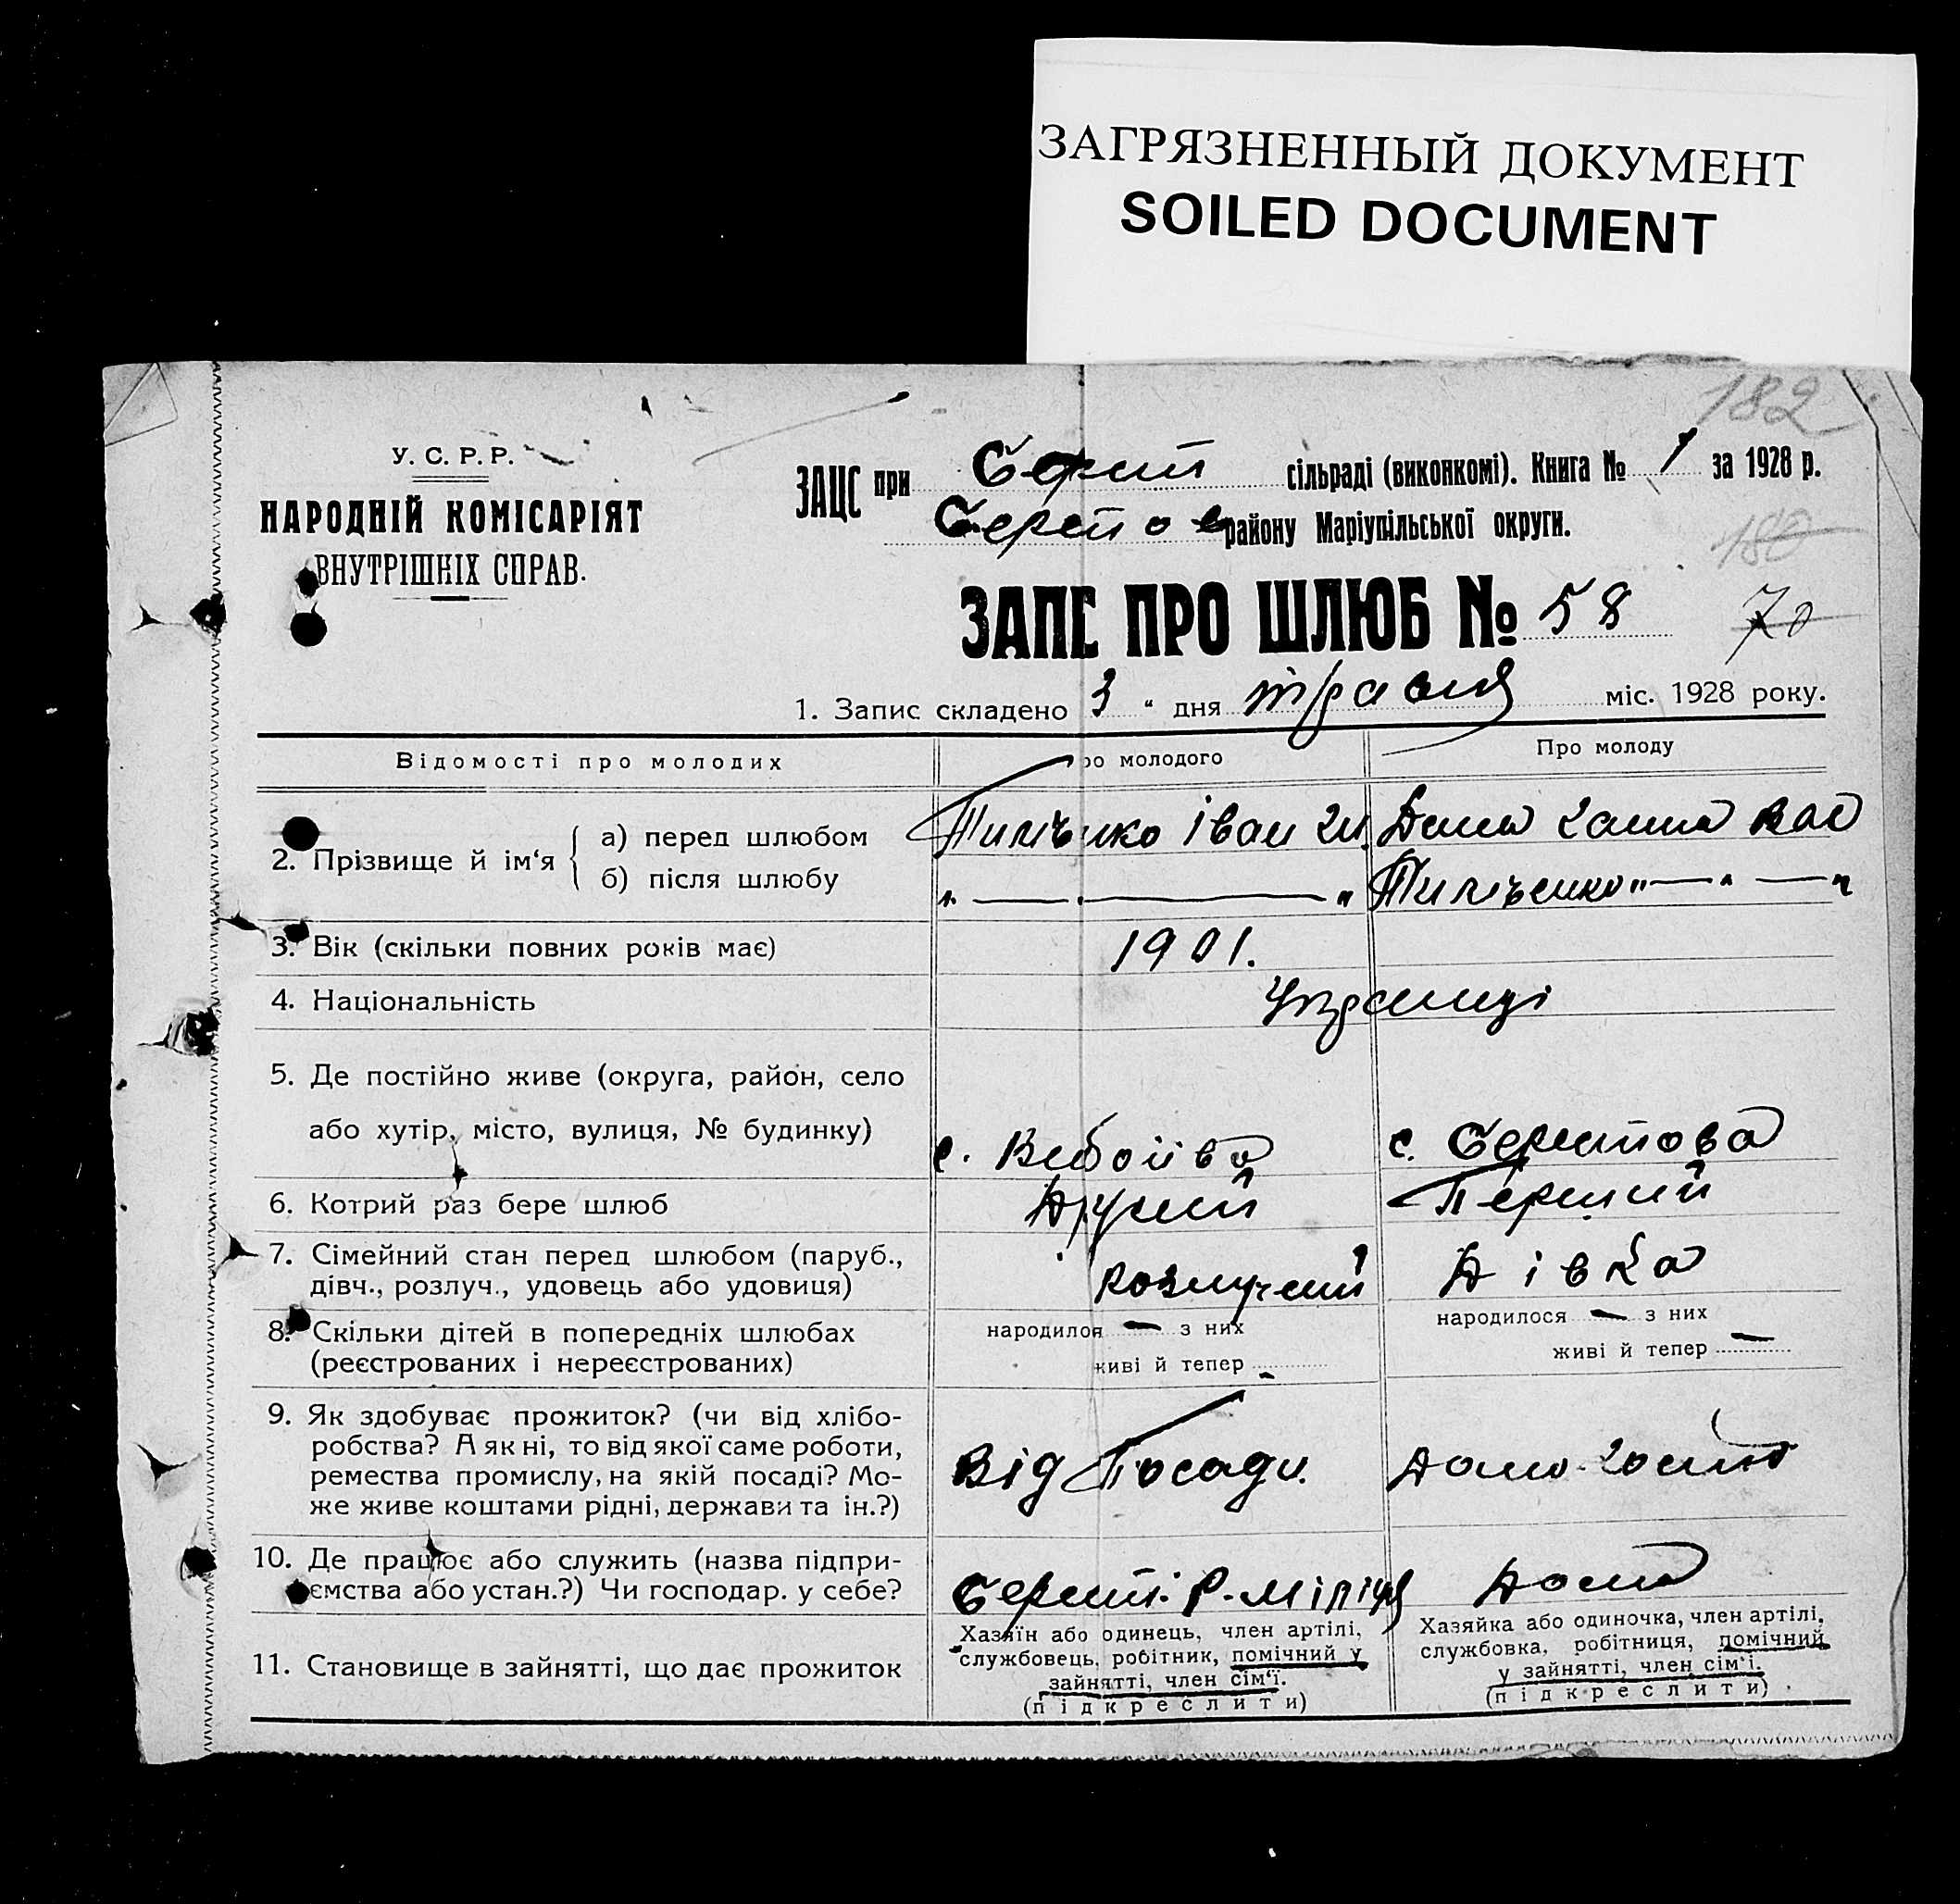 ЗАГРЯЗНЕННЫЙ ДОКУМЕНТ
SOILED DOCUMENT
182
У. С. Р. Р.
НАРОДНІЙ КОМІСАРІЯТ
ВНУТРІШНІХ СПРАВ.
ЗАЦС при сільраді (виконкомі). Книга № 1 за 1928 р.
району Маріупільської округи.
180
ЗАПС ПРО ШЛЮБ № 58
70
1. Запис складено 3 " дня травня міс. 1928 року.
Відомості про молодих
ро молодого
Про молоду
2. Прізвище й ім'я { а) перед шлюбом
б) після шлюбу
Іван
Ганна Вас
" — " — "
" — " — "
3. Вік (скільки повних років має)
1901.
4. Національність
Українці
5. Де постійно живе (округа, район, село
або хутір, місто, вулиця, № будинку)
с.
с.
6. Котрий раз бере шлюб
Другий
Перший
7. Сімейний стан перед шлюбом (паруб.,
дівч., розлуч., удовець або удовиця)
розлучений
Дівка
8. Скільки дітей в попередніх шлюбах
(реєстрованих і нереєстрованих)
народилося — з них
живі й тепер —
народилося — з них
живі й тепер —
9. Як здобуває прожиток? (чи від хлібо-
робства? А як ні, то від якої саме роботи,
ремества промислу, на якій посаді? Мо-
же живе коштами рідні, держави та ін.?)
Від Посади.
10. Де працює або служить (назва підпри-
ємства або устан.?) Чи господар. у себе?
Р. Міліція
Дома
11. Становище в зайнятті, що дає прожиток
Хазяїн або одинець, член артілі,
службовець, робітник, помічний у
зайнятті, член сім'ї.
(підкреслити)
Хазяйка або одиночка, член артілі,
службовка, робітниця, помічний
у зайнятті, член сім'ї.
(підкреслити)